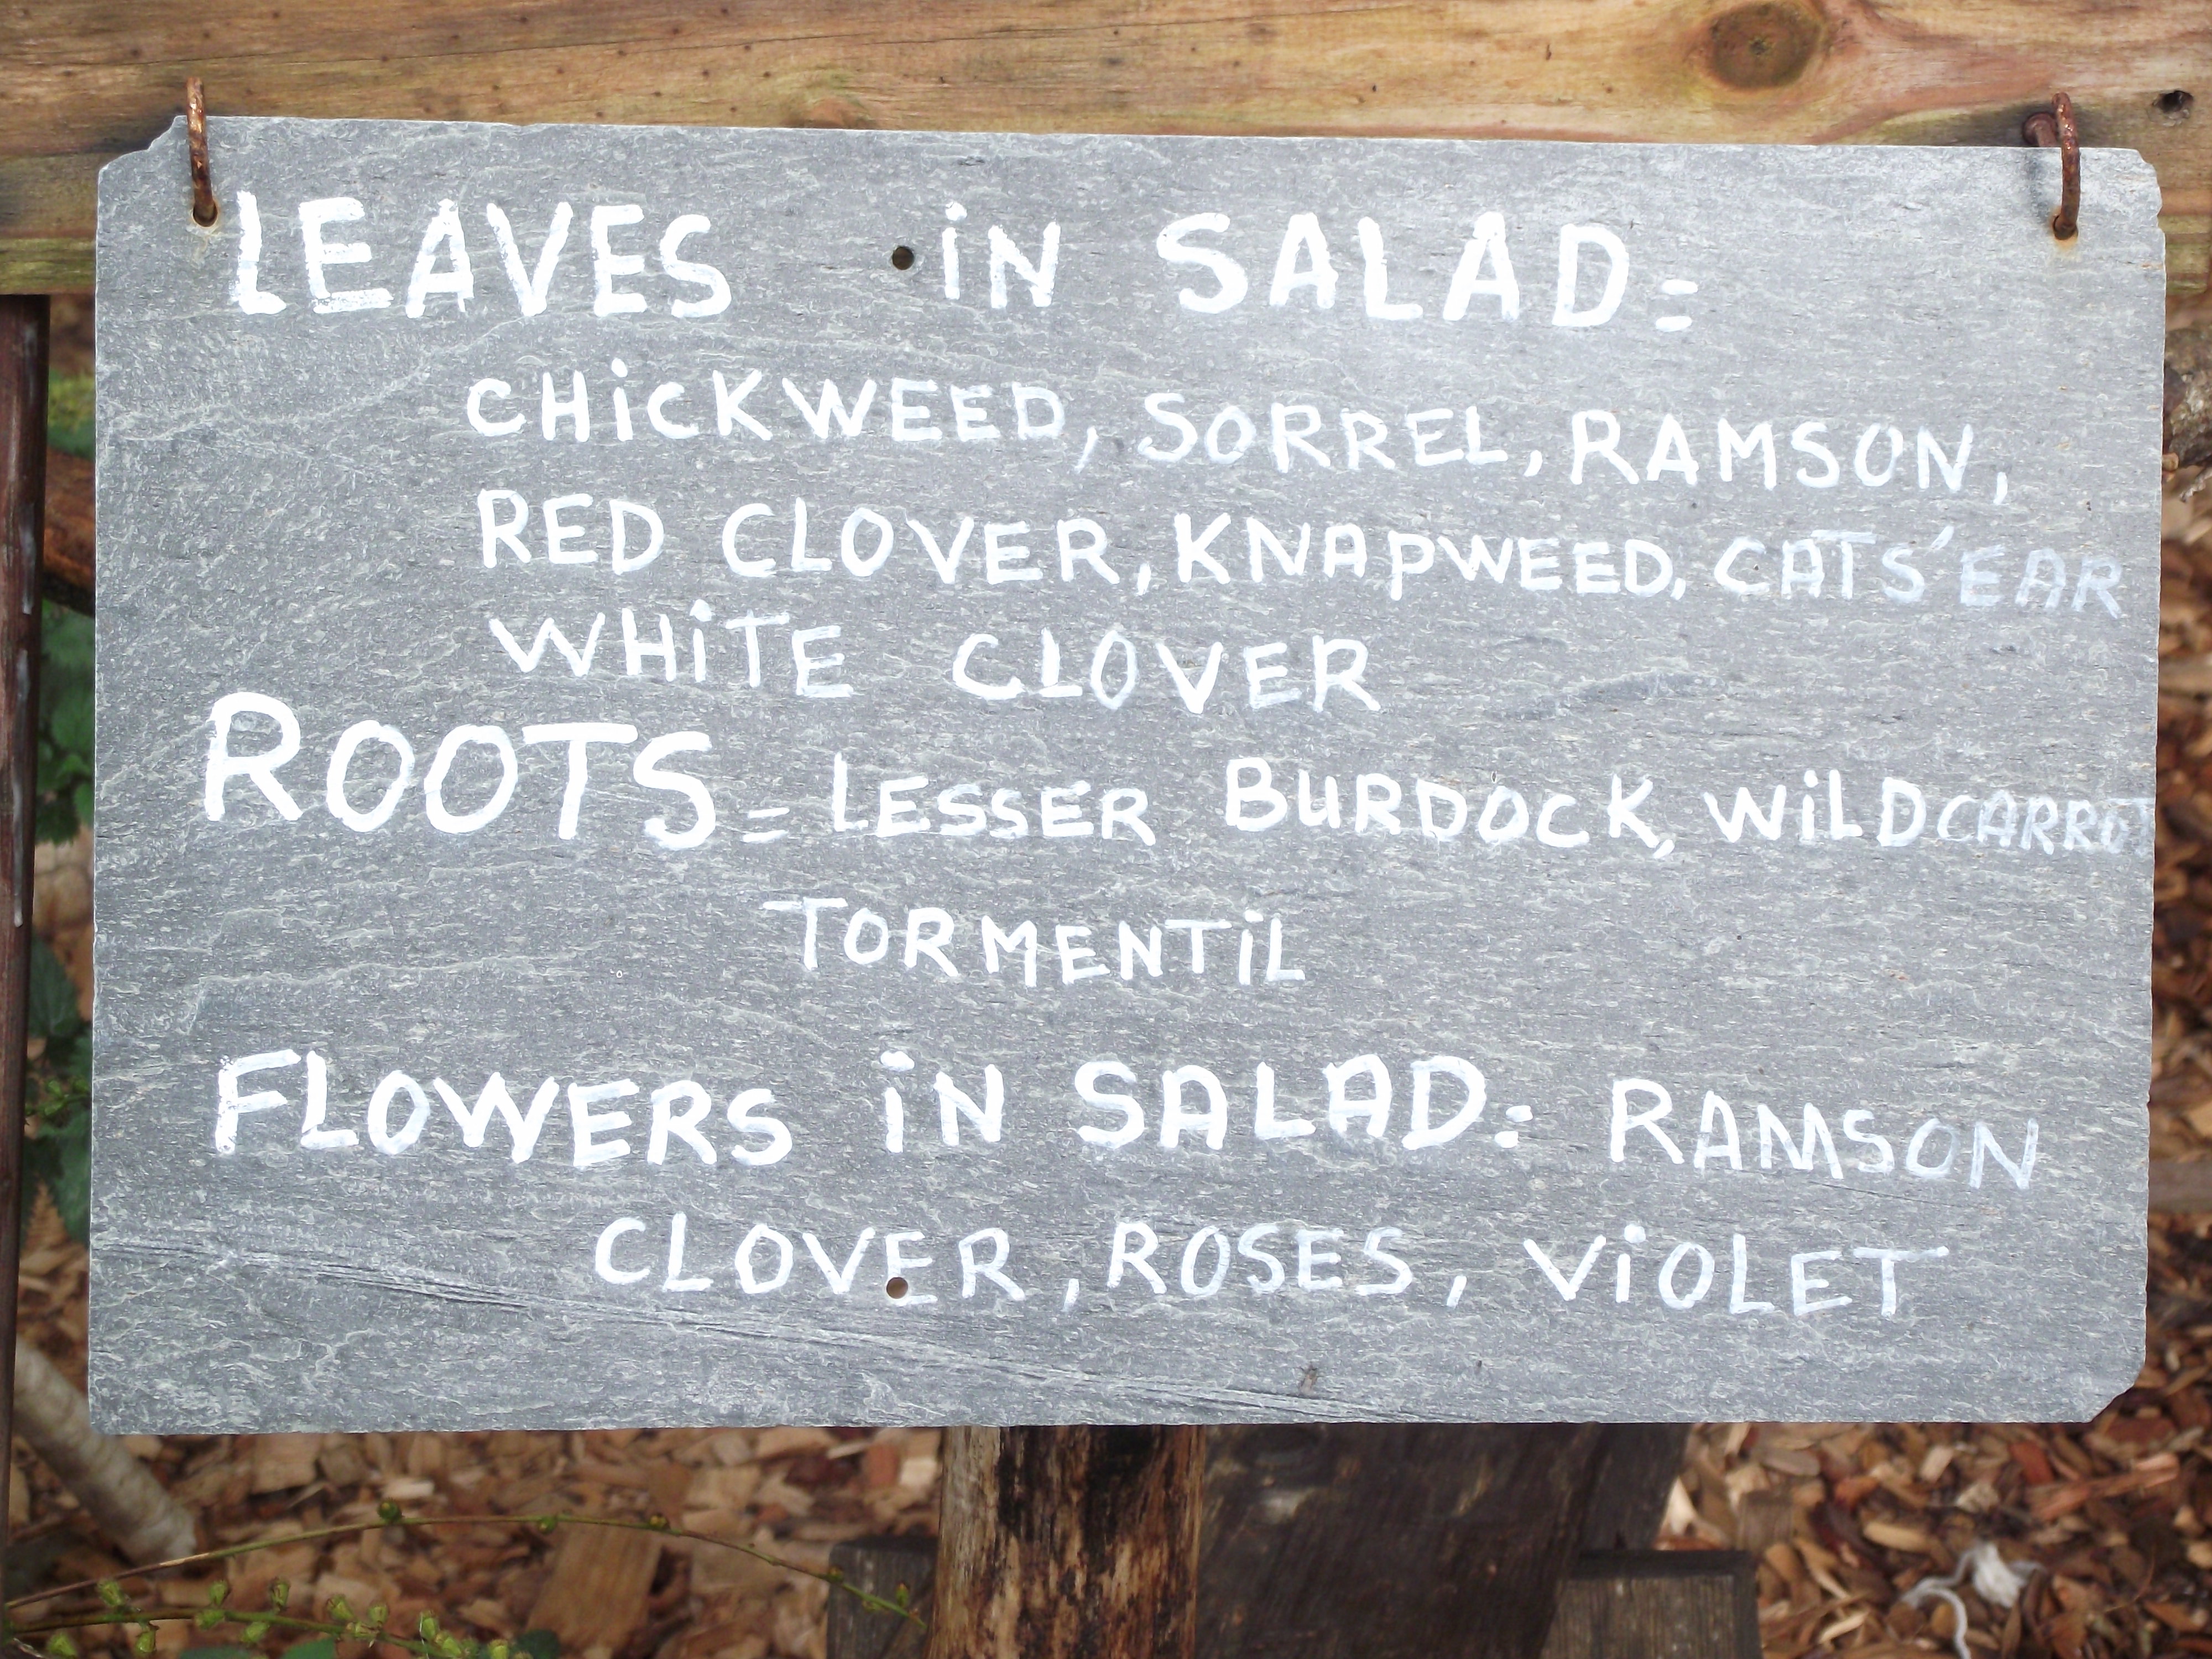 LEAVES iN SALAD=
CHiCKWEED, SORREL, RAMSON,
RED CLOVER, KNAPWEED, CATS'EAR
WHiTE CLOVER
ROOTS= LESSER BURDOCK, WiLD CARROT
TORMENTiL
FLOWERS iN SALAD: RAMSON
CLOVER, ROSES, ViOLET